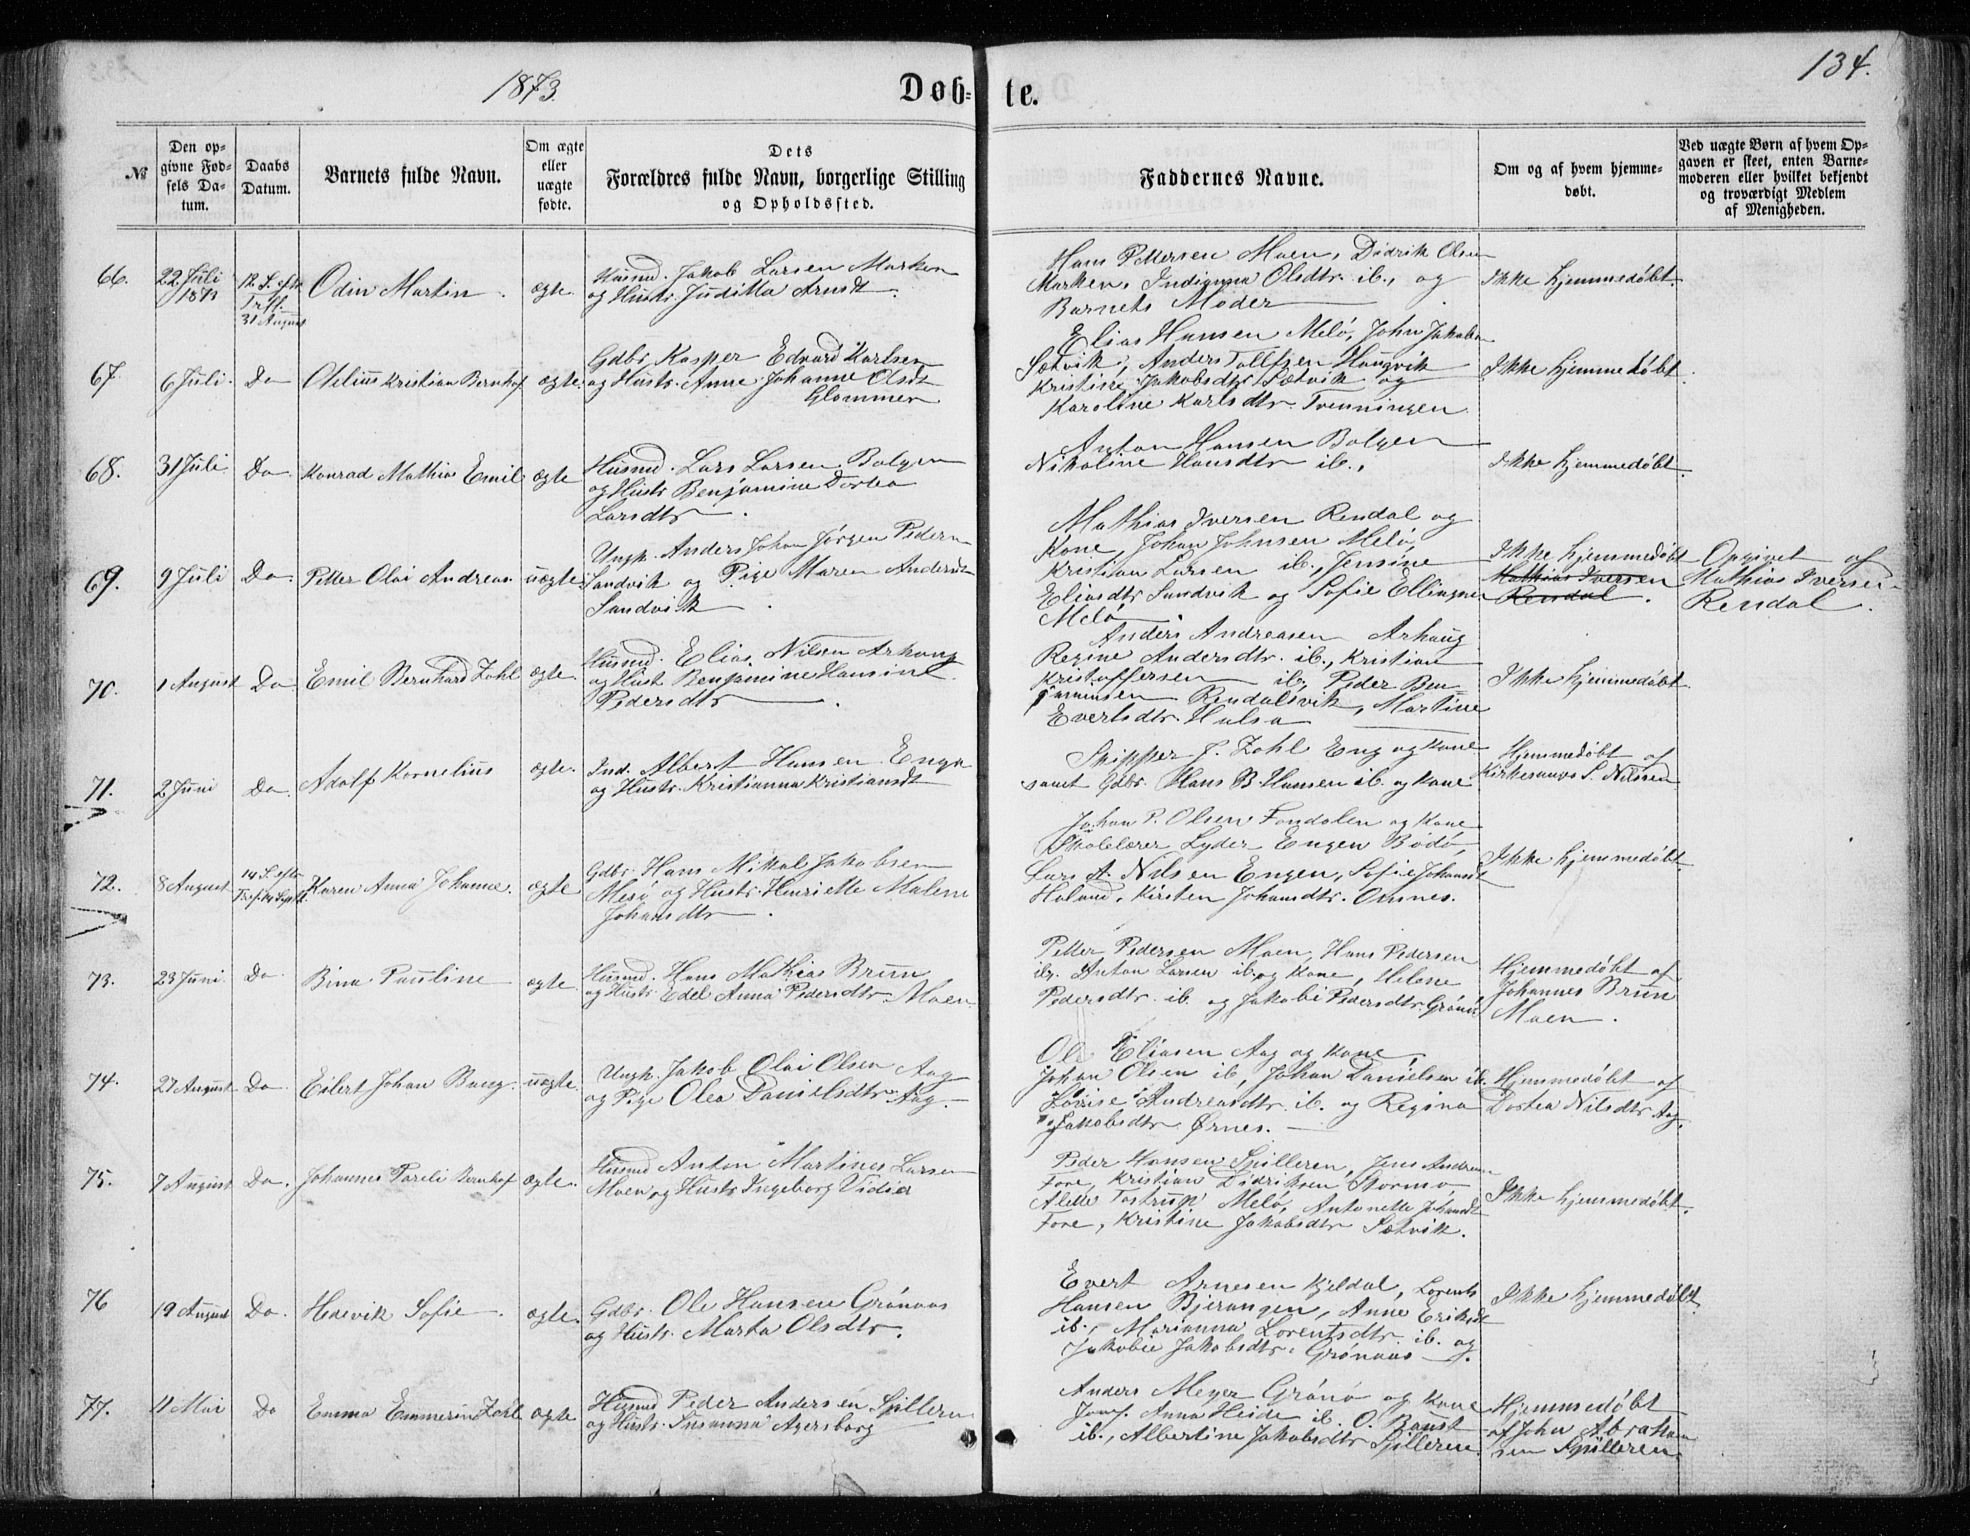 1873.
Døb-
te.
134.
№
Den op-
givne Fød-
sels Da-
tum.
Daabs
Datum.
Barnets fulde Navn.
Om ægte
eller
uægte
fødte.
Dets
Forældres fulde Navn, borgerlige Stilling
og Opholdssted.
Faddernes Navne.
Om og af hvem hjemme-
døbt.
Ved uægte Børn af hvem Op-
gaven er skeet, enten Barne-
moderen eller hvilket bekjendt
og troværdigt Medlem
af Menigheden.
66.
22 Juli
1873
12 S. eft.
Treff.
31 August
Odin Martin
ægte.
Husmd. Jakob Larsen Marken
og Hustr. Juditta Arnsdt.
Hans Pettersen Moen, Didrik Olsen
Marken, Indianna Olsdtr. ib., og
Barnets Moder
Ikke hjemmedøbt.
67.
6 Juli.
Do
Otelius Kristian Bernhof
ægte.
Gdbr. Kasper Edvard Karlsen
og Hustr. Anne Johanne Olsdt
Glommen
Elias Hansen Melø, John Jakobsen
Sætvik, Anders Tollefsen Haugvik
Kristine Jakobsdtr. Sætvik og
Karoline Karlsdtr. Tvenningen
Ikke hjemmedøbt.
68.
31 Juli
Do
Konrad Mathias Emil
ægte
Husmd. Lars Larsen Bolgen
og Hustr. Benjamine Dortea
Larsdtr.
Anton Hansen Bolgen
Nikoline Hansdtr. ib.,
Ikke hjemmedøbt.
69.
9 Juli
Do.
Petter Olai Andreas
uægte
Ungk. Anders Johan Jørgen Pedersen
Sandvik og Pige Maren Andersdt
Sandvik
Mathias Iversen Rendal og
Kone, Johan Johnsen Melø,
Kristian Larsen ib., Jensine
Eliasdtr Sandvik og Sofie Ellingsen
Melø
Ikke hjemmedøbt
Mathias Iversen
Rendal.
Opgivet af
Mathias Iversen
Rendal.
70.
1 August
Do
Emil Bernhard Zahl
ægte.
Husmd. Elias Nilsen Arhaug
og Hust. Benjamine Hansine
Pedersdtr.
Anders Andreasen Arhaug
Regine Andersdtr. ib., Kristian
Kristoffersen ib., Peder Ben-
jaminsen Rendalsvik, Martine
Evertsdtr. Halsa
Ikke hjemmedøbt.
71.
2 Juni
Do.
Adolf Kornelius
ægte.
Ind. Albert Hansen Enga
og Hustr. Kristianna Kristiansdt
Skipper J. Zahl Eng og Kone
samt Gdbr. Hans B. Hansen ib. og Kone
Hjemmedøbt af
Kirkesanger S. Nilssen
72.
8 August
14 S. eft.
Tref. 14 Septb.
Karen Anna Johanne.
ægte
Gdbr. Hans Mikal Jakobsen
Mesø og Hustr. Henriette Malene
Johansdtr.
Johan P. Olsen Fondalen og Kone
Skolelærer Lyder Engen Bodø,
Lars A. Nilsen Engen, Sofie Johansdt
Haland, Kirsten Johansdtr. Omnes.
Ikke hjemmedøbt.
73.
23 Juni
Do
Bina Pauline
ægte.
Husmd. Hans Mathias Bruun
og Hustr. Edel Anna Pedersdtr. Moen.
Petter Pedersen Moen, Hans Pedersen
ib., Anton Larsen ib. og Kone, Helene
Pedersdtr. ib. og Jakobi Pedersdtr. Grønø
Hjemmedøbt af
Johannes Bruun
Moen.
74.
27 August
Do.
Eilert Johan Bang.
uægte.
Ungk. Jakob Olai Olsen Aag
og Pige Olea Danielsdtr. Aag.
Ole Eliasen Aag og Kone
Johan Olsen ib, Johan Danielsen ib.
Lovise Andreasdtr. ib. og Regina
Jakobsdtr. Ørnes.
Hjemmedøbt af
Dortea Nilsdtr Aag.
75.
7 August
Do.
Johannes Pareli Bernhof
ægte.
Husmd Anton Martines Larsen
Moen og Hustr. Ingeborg Vidia
Peder Hansen Spilleren, Jens Andreas
Fore, Kristian Didriksen Stormo
Alette Tostrup Melø, Antonette Johansdt
Fore, Kristine Jakobsdtr Sætvik.
Ikke hjemmedøbt.
76
19 August
Do.
Hedevik Sofie
ægte.
Gdbr. Ole Hansen Grønaas
og Hustr. Marta Olsdtr.
Evert Arnesen Kjeldal, Lorents
Hansen Bjerangen, Anne Eriksdt
ib., Marianna Lorentsdtr. ib. og
Jakobie Jakobsdtr. Grønaas
Ikke hjemmedøbt
77.
11 Mai
Do
Emma Emmerine Zahl
ægte
Husmd Peder Andersen Spilleren
og Hustr. Susanna Agersborg
Anders Meyer Grønø og Kone
Jomf. Anna Heide ib. O. Baust
ib., Albertine Jakobsdtr Spilleren
Hjemmedøbt
af John Abraham
sen Spilleren